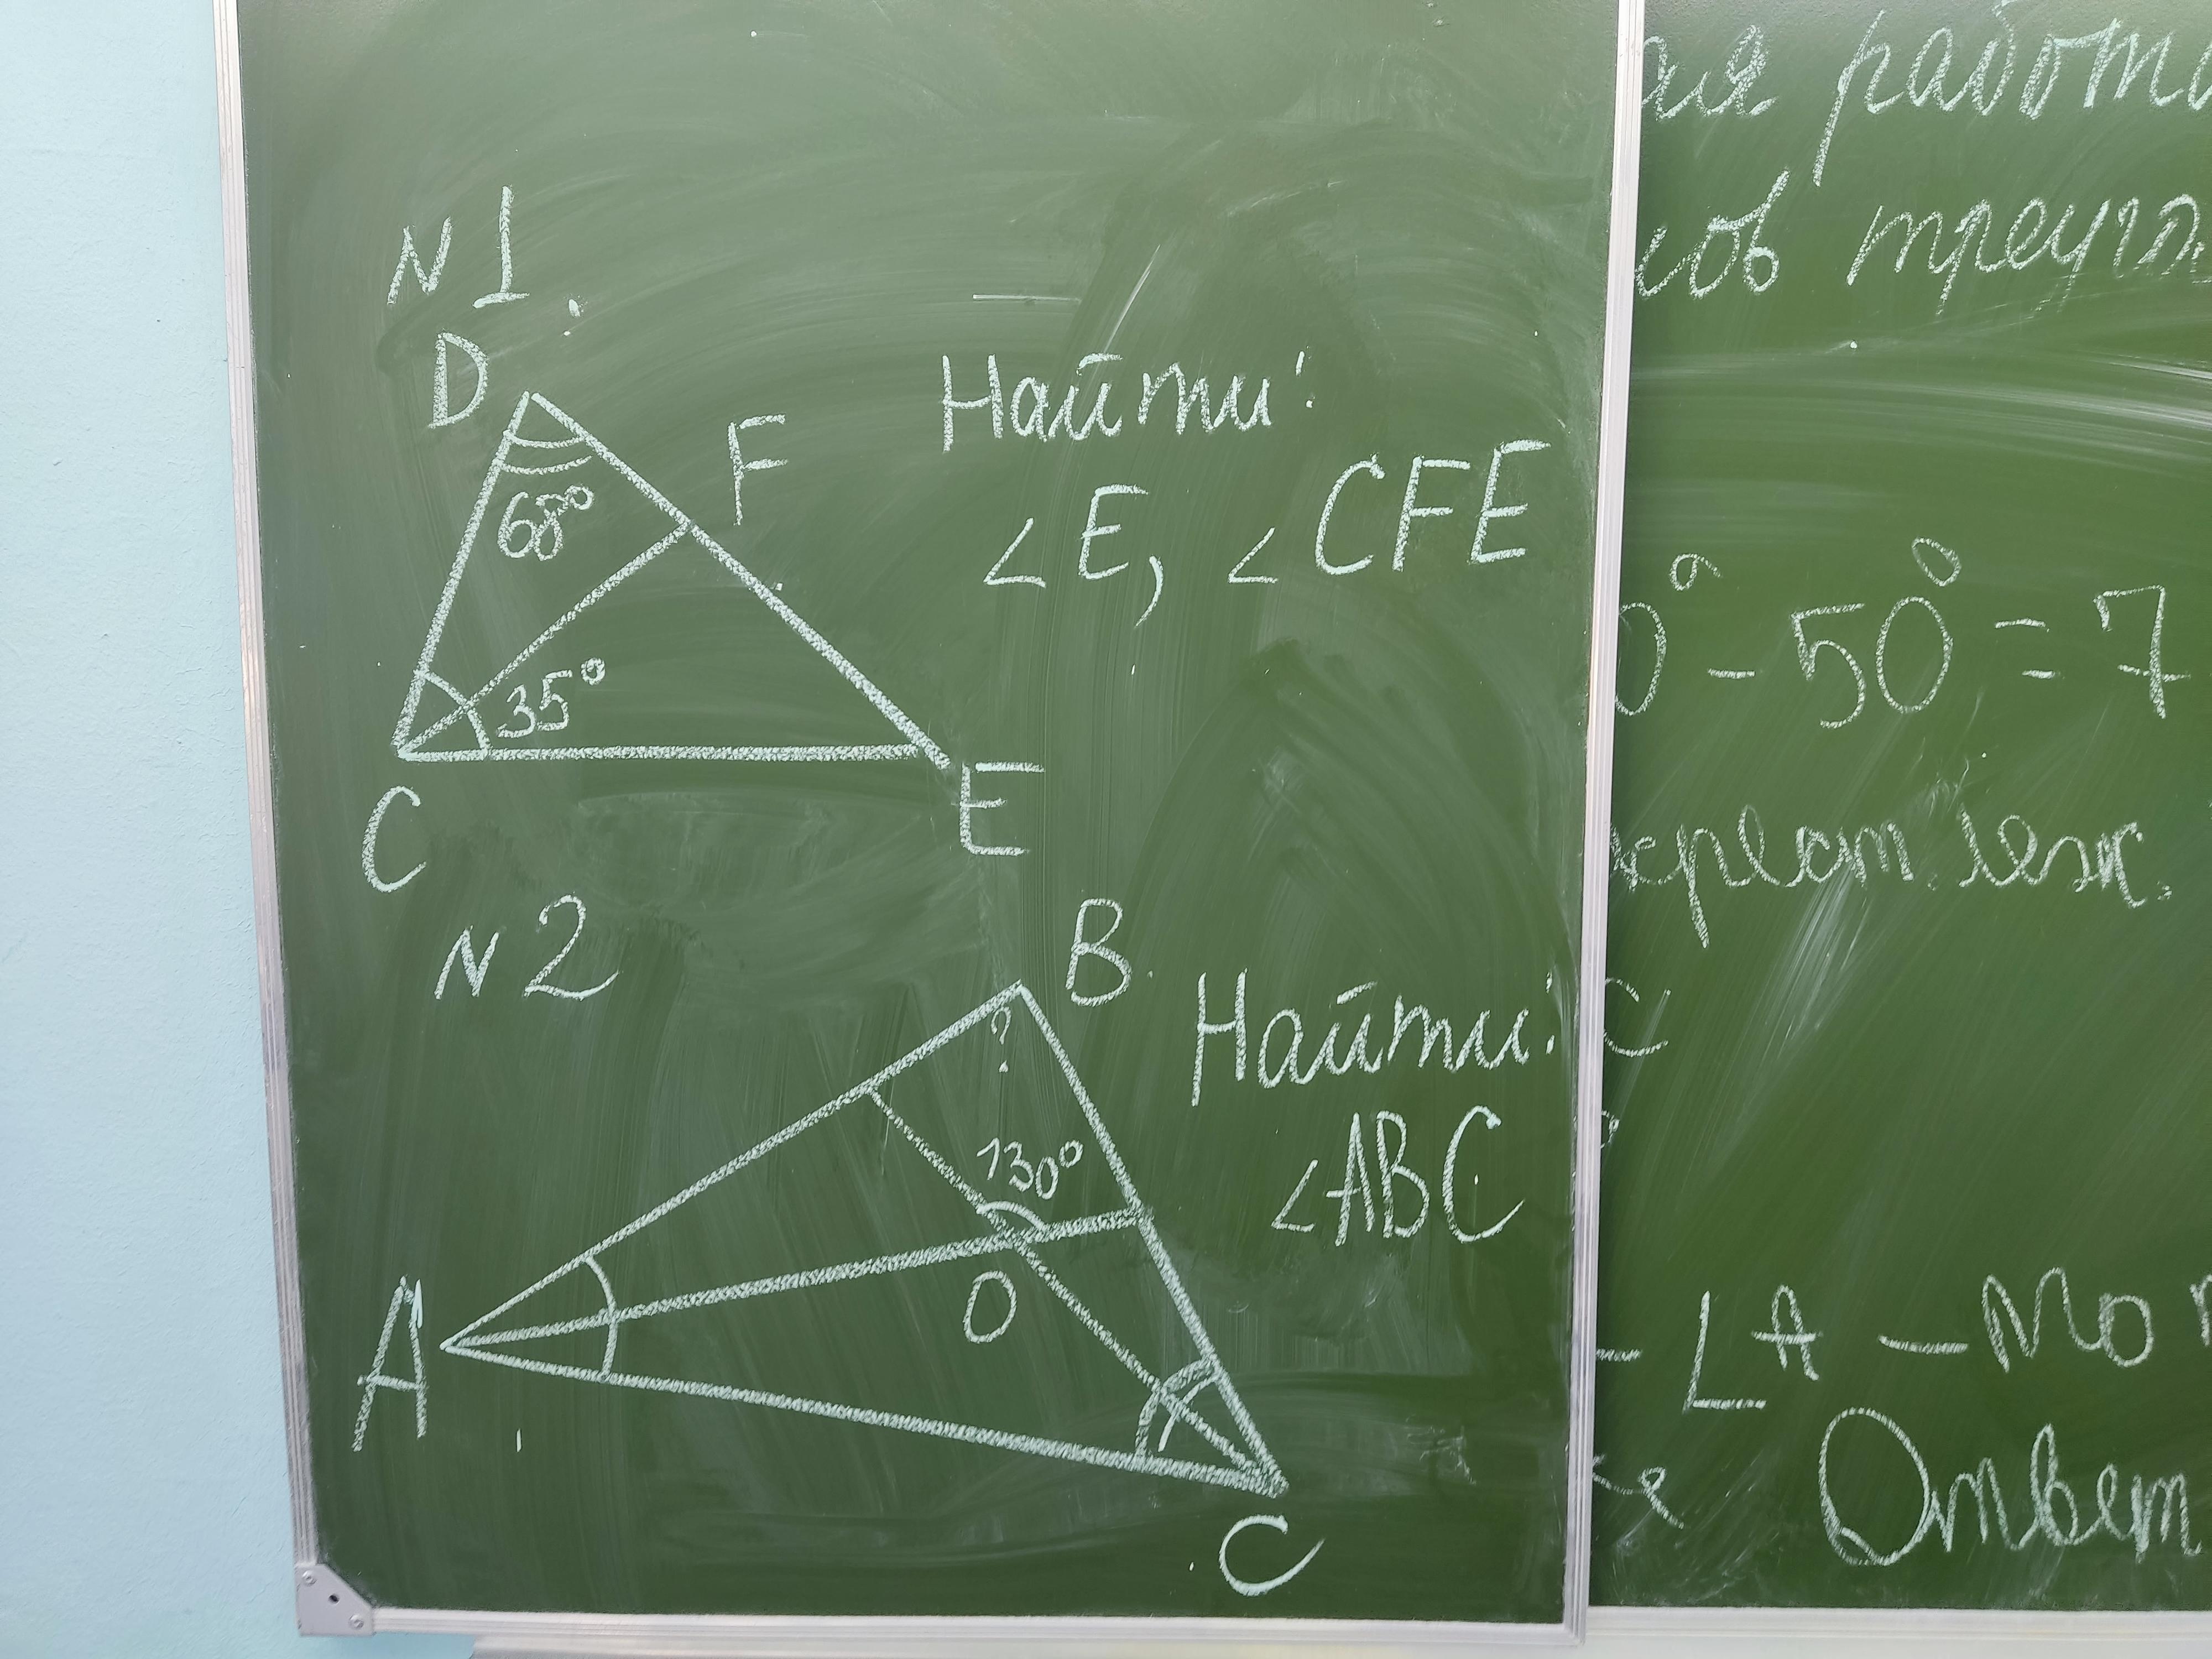 N 1.
D
F
68°
35°
C
E
Найти:
∠E, ∠CFE
N 2
B
?
130°
O
A
C
Найти:
∠ABC
ая работа
лов треуг
0° - 50° = 7
крест леж.
C
- ∠A -
Ответ